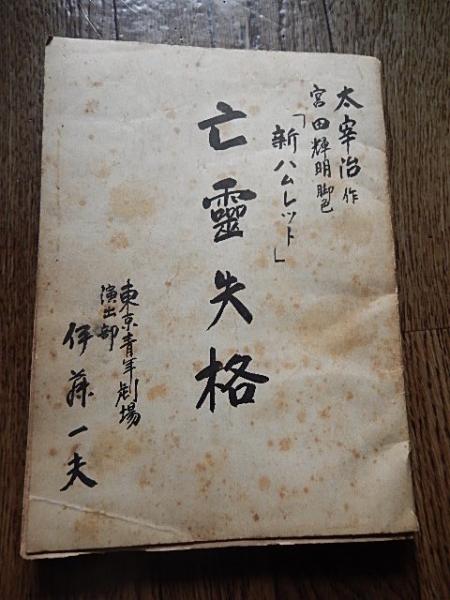 太宰治 作
宮田輝明 脚色
「新ハムレット」
亡靈失格
東京青年劇場
演出部
伊藤一夫